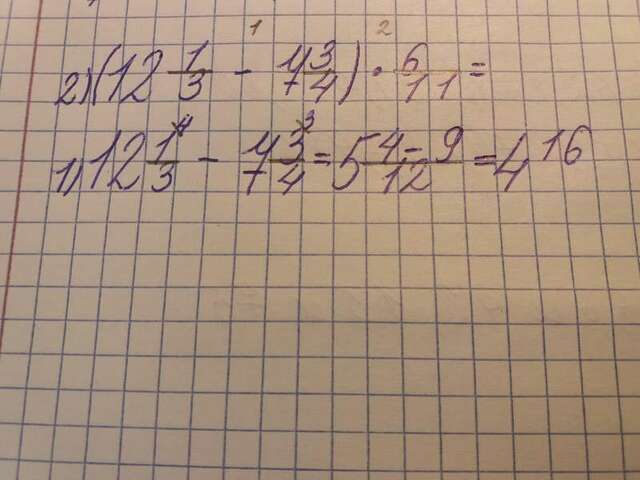 1 2
2) (12 1/3 - 7 3/4) · 6/11 =
1) 12 1/3 ⁴ - 7 3/4 ³ = 5 4-9/12 = 4 16